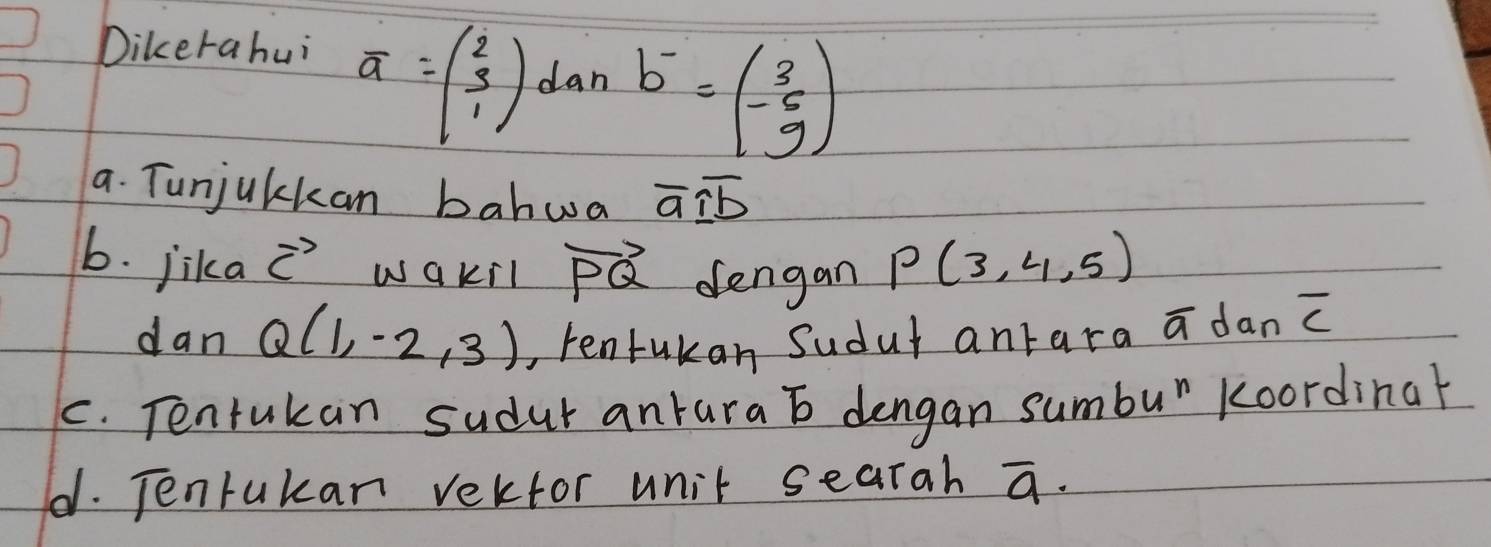 Diketahui ā = (2 3 1) dan b̄ = (3 -5 9)
a. Tunjukkan bahwa ā ⊥ b̄
b. jika c⃗ wakil PQ⃗ dengan P(3,4,5)
dan Q(1,-2,3), tentukan Sudut antara ā dan c̄
c. Tentukan sudut antara b̄ dengan sumbu" koordinat
d. Tentukan vektor unit searah ā.